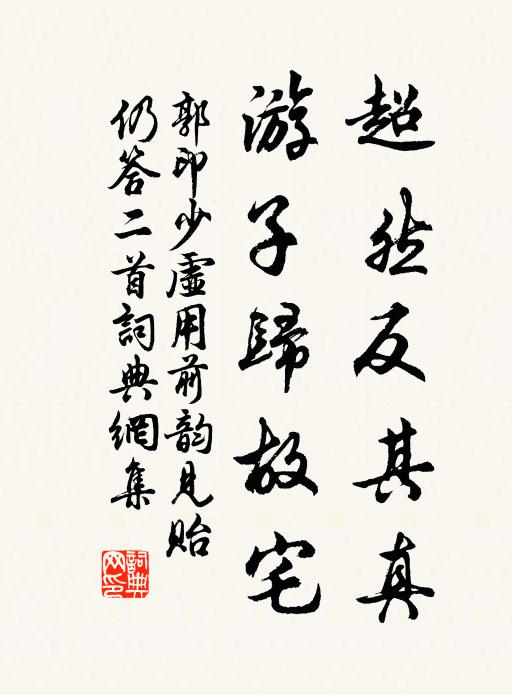 超然反其真
游子歸故宅
郭印少虛用前韵見貽
仍答二首詞典網集
詞典網印